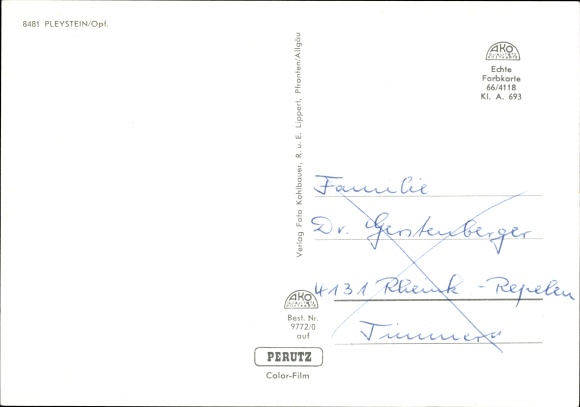 8481 PLEYSTEIN/Opf.
AKO
Echte
Farbkarte
66/4118
Kl. A. 693
Verlag Foto Kohlbauer, R. u. E. Lippert, Pfronten/Allgäu
Familie
Dr. Gerstenberger
4131 Rheink - Repelen
AKO
Best. Nr.
9772/0
auf
PERUTZ
Color-Film